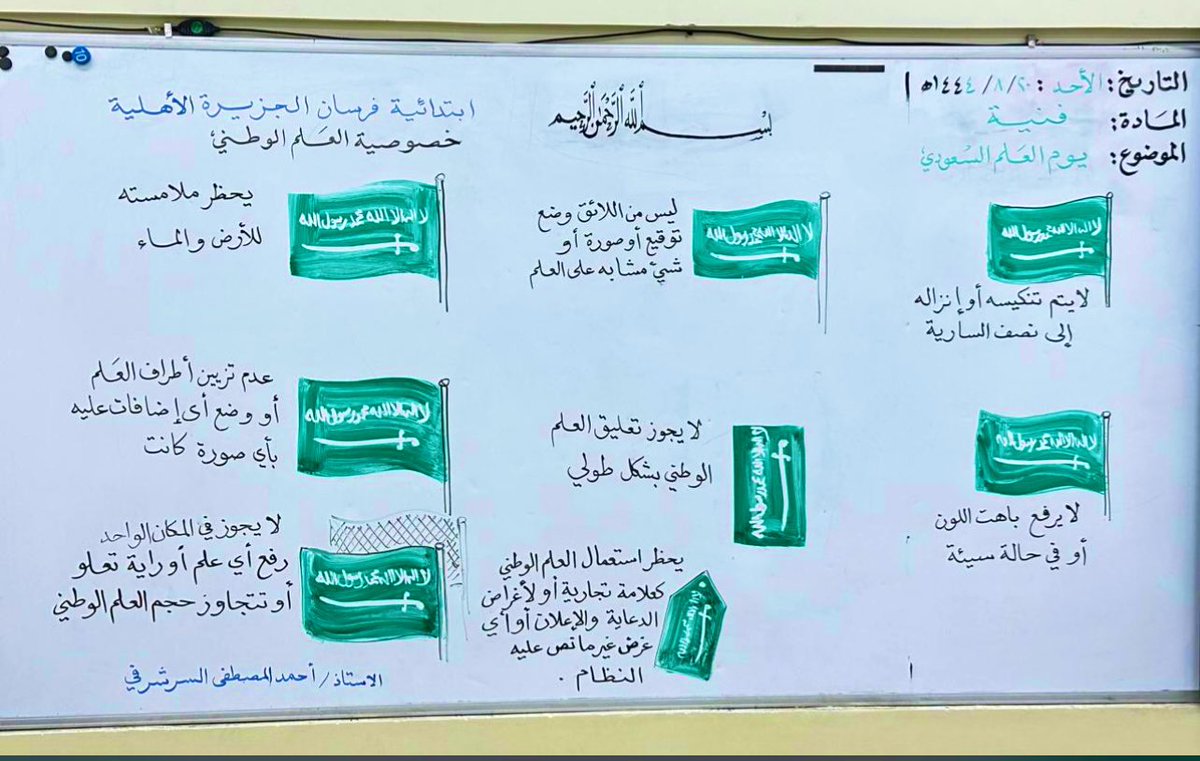 بسم الله الرحمن الرحيم
التاريخ: الأحد: ٢٠/ ٨/ ١٤٤٤هـ
المادة: فنية
الموضوع: يوم العلم السعودي
ابتدائية فرسان الجزيرة الأهلية
خصوصية العلم الوطني
لا اله الا الله محمد رسول الله
لا يتم تنكيسه أو إنزاله
إلى نصف السارية
لا اله الا الله محمد رسول الله
ليس من اللائق وضع
توقيع أو صورة أو
شئ مشابه على العلم
لا اله الا الله محمد رسول الله
يحظر ملامسته
للأرض والماء
لا اله الا الله محمد رسول الله
لا يرفع باهت اللون
أو في حالة سيئة
لا اله الا الله محمد رسول الله
لا يجوز تعليق العلم
الوطني بشكل طولي
لا اله الا الله محمد رسول الله
عدم تزيين أطراف العَلم
أو وضع أى إضافات عليه
بأي صورة كانت
لا اله الا الله محمد رسول الله
يحظر استعمال العلم الوطني
كعلامة تجارية أو لأغراض
الدعاية والإعلان أو أي
غرض غير ما نص عليه
النظام .
لا اله الا الله محمد رسول الله
لا يجوز في المكان الواحد
رفع أي علم أو راية تعلو
أو تتجاوز حجم العلم الوطني
الاستاذ / أحمد المصطفى السرشرفي